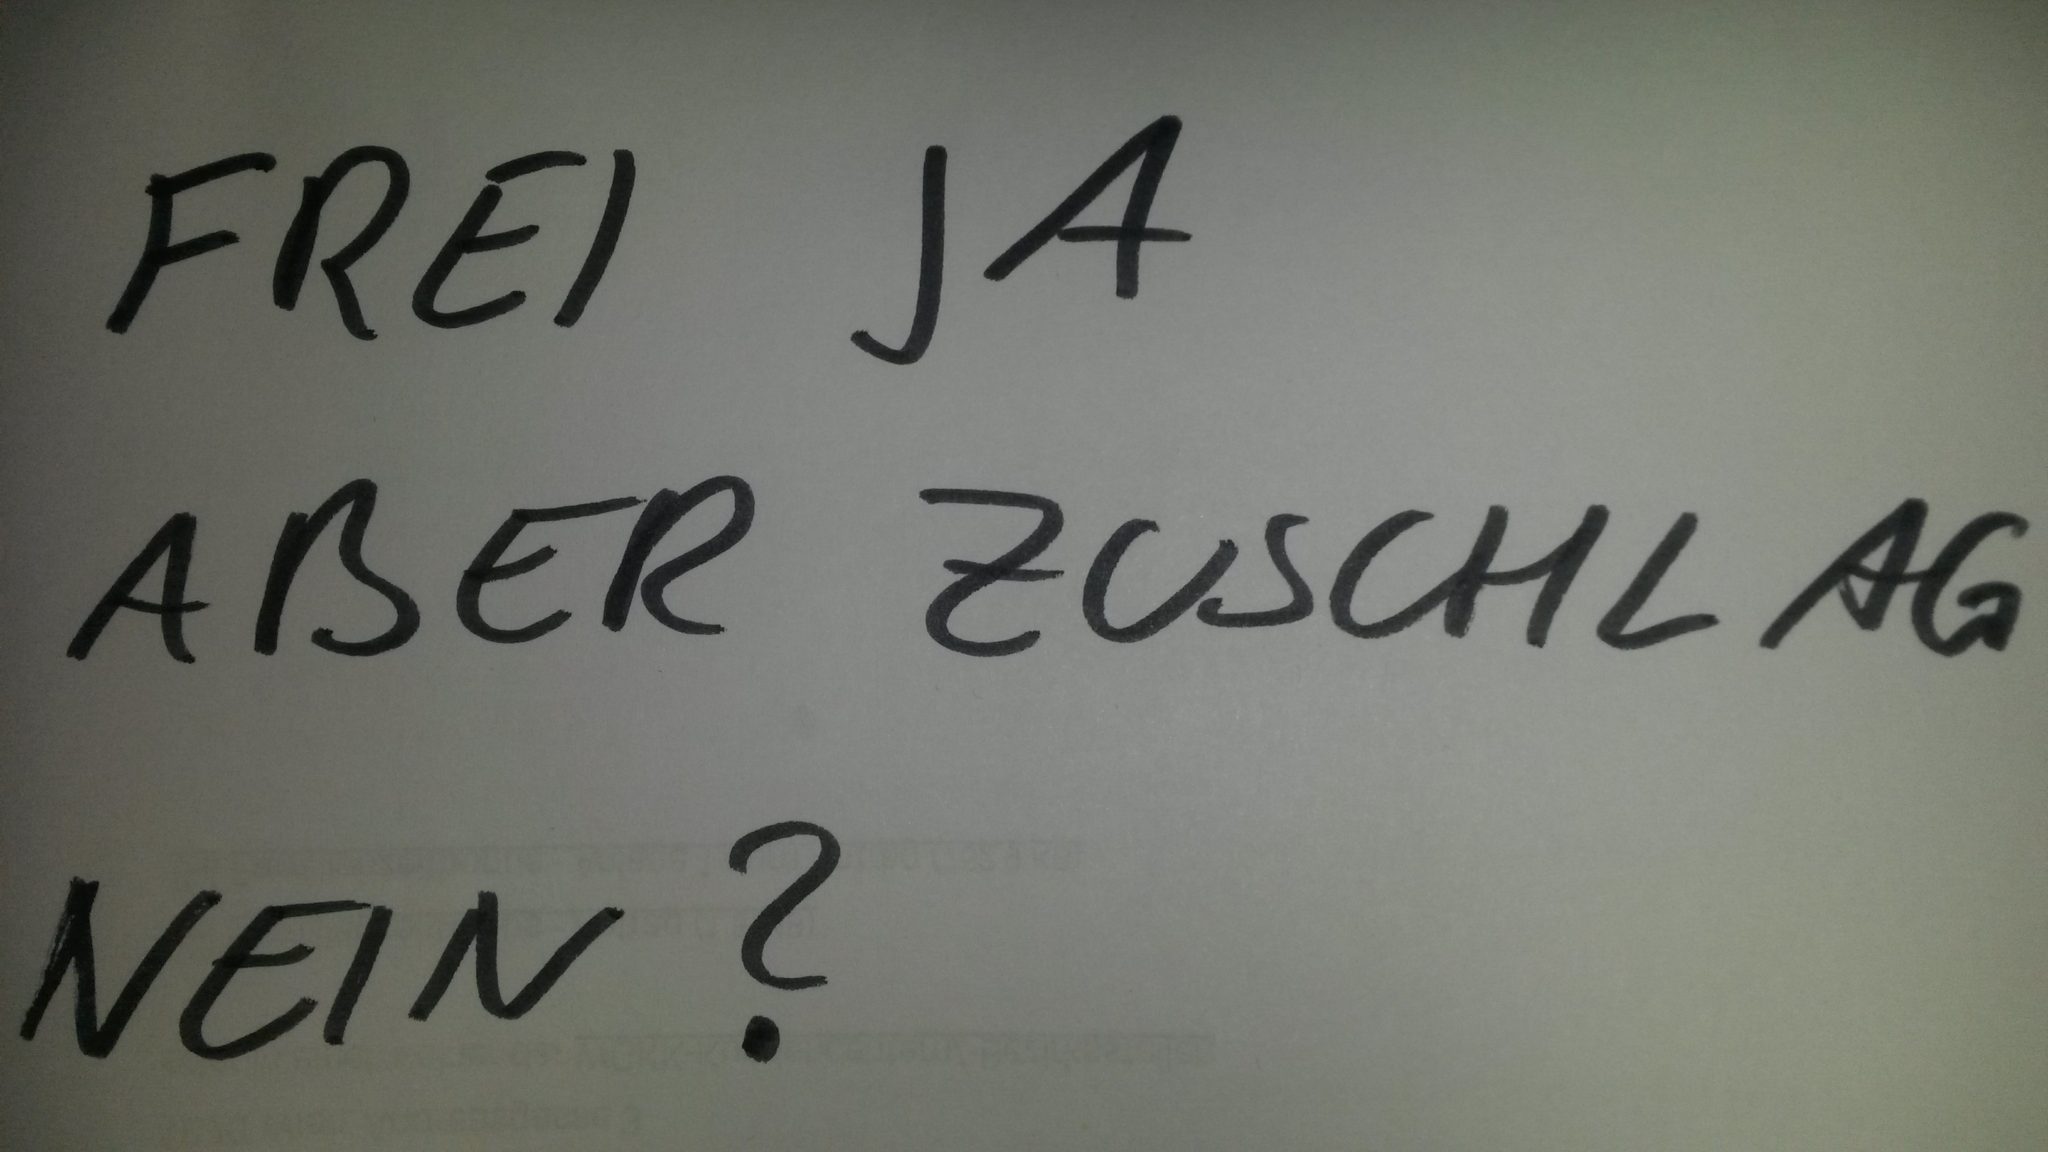 FREI JA
ABER ZUSCHLAG
NEIN?